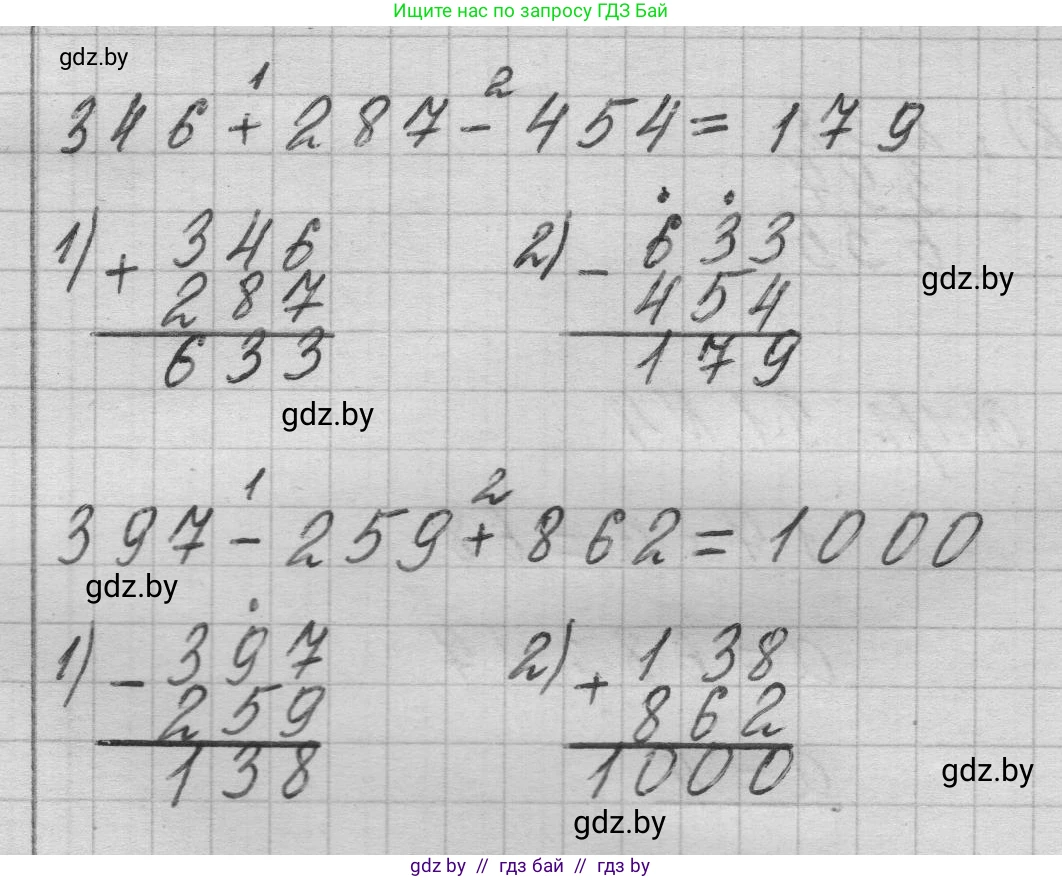 Ищите нас по запросу ГДЗ Бай
gdz.by
1 2
346 + 287 - 454 = 179
1) + 346 2) - 633
287 454
gdz.by
633 179
gdz.by
1 2
397 - 259 + 862 = 1000
gdz.by
1) - 397 2) + 138
259 862
138 1000
gdz.by
gdz.by
gdz by // гдз бай // гдз by